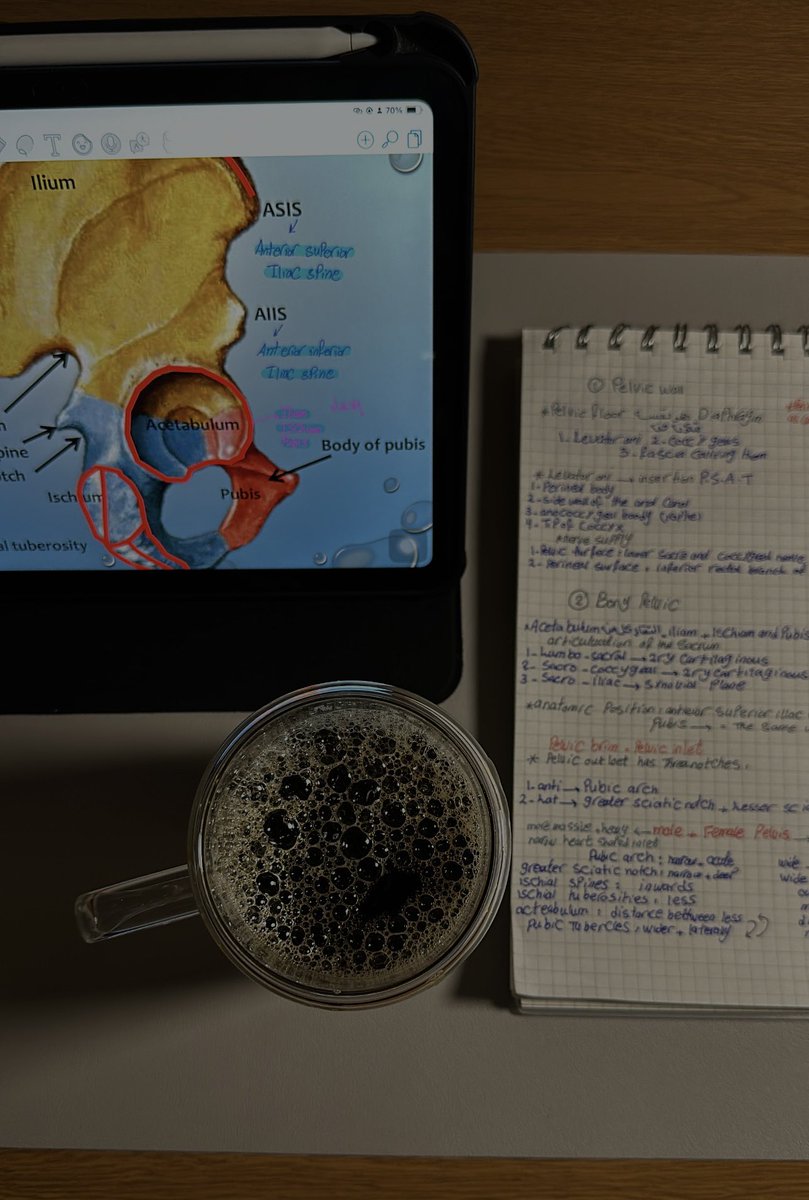 70%
T
Ilium
ASIS
Anterior superior
Iliac spine
AIIS
Anterior inferior
Iliac spine
Acetabulum
Body of pubis
pine
tch
Ischium
Pubis
al tuberosity
① Pelvic wall
*Pelvic Floor Diaphragm
1. Levator ani, 2- Coccygeus
3- Fascia covering them
* Levator ani → insertion P.S.A.T
1- Perineal body
2- side wall of the anal Canal
3- anococcygeal body (raphe)
4- TP of Coccyx
*nerve supply
1- Pelvic surface: lower sacral and coccygeal nerve
2- Perineal surface: inferior rectal branch of
② Bony Pelvic
*Acetabulum iliam + Ischiam and Pubis
articulation of the Sacrum
1- Lambo-sacral → 2ry Cartilaginous
2- Sacro-coccygeal → 2ry cartilaginous
3- Sacro-iliac → Synovial Plane
*anatomic Position: anterior superior iliac
Pubis → the same
Pelvic brim = Pelvic inlet
* Pelvic out let has Three notches:
1. anti → Pubic arch
2- lat → greater sciatic notch + lesser scia
more massive + heavy ← male + Female Pelvis
narrow heart shaped inlet
Pubic arch: narrow, acute wide
greater sciatic notch: narrow + deep wide
ischial spines: inwards
ischial tuberosities: less
acteabulum: distance between less
Pubic Tubercles: wider + laterally